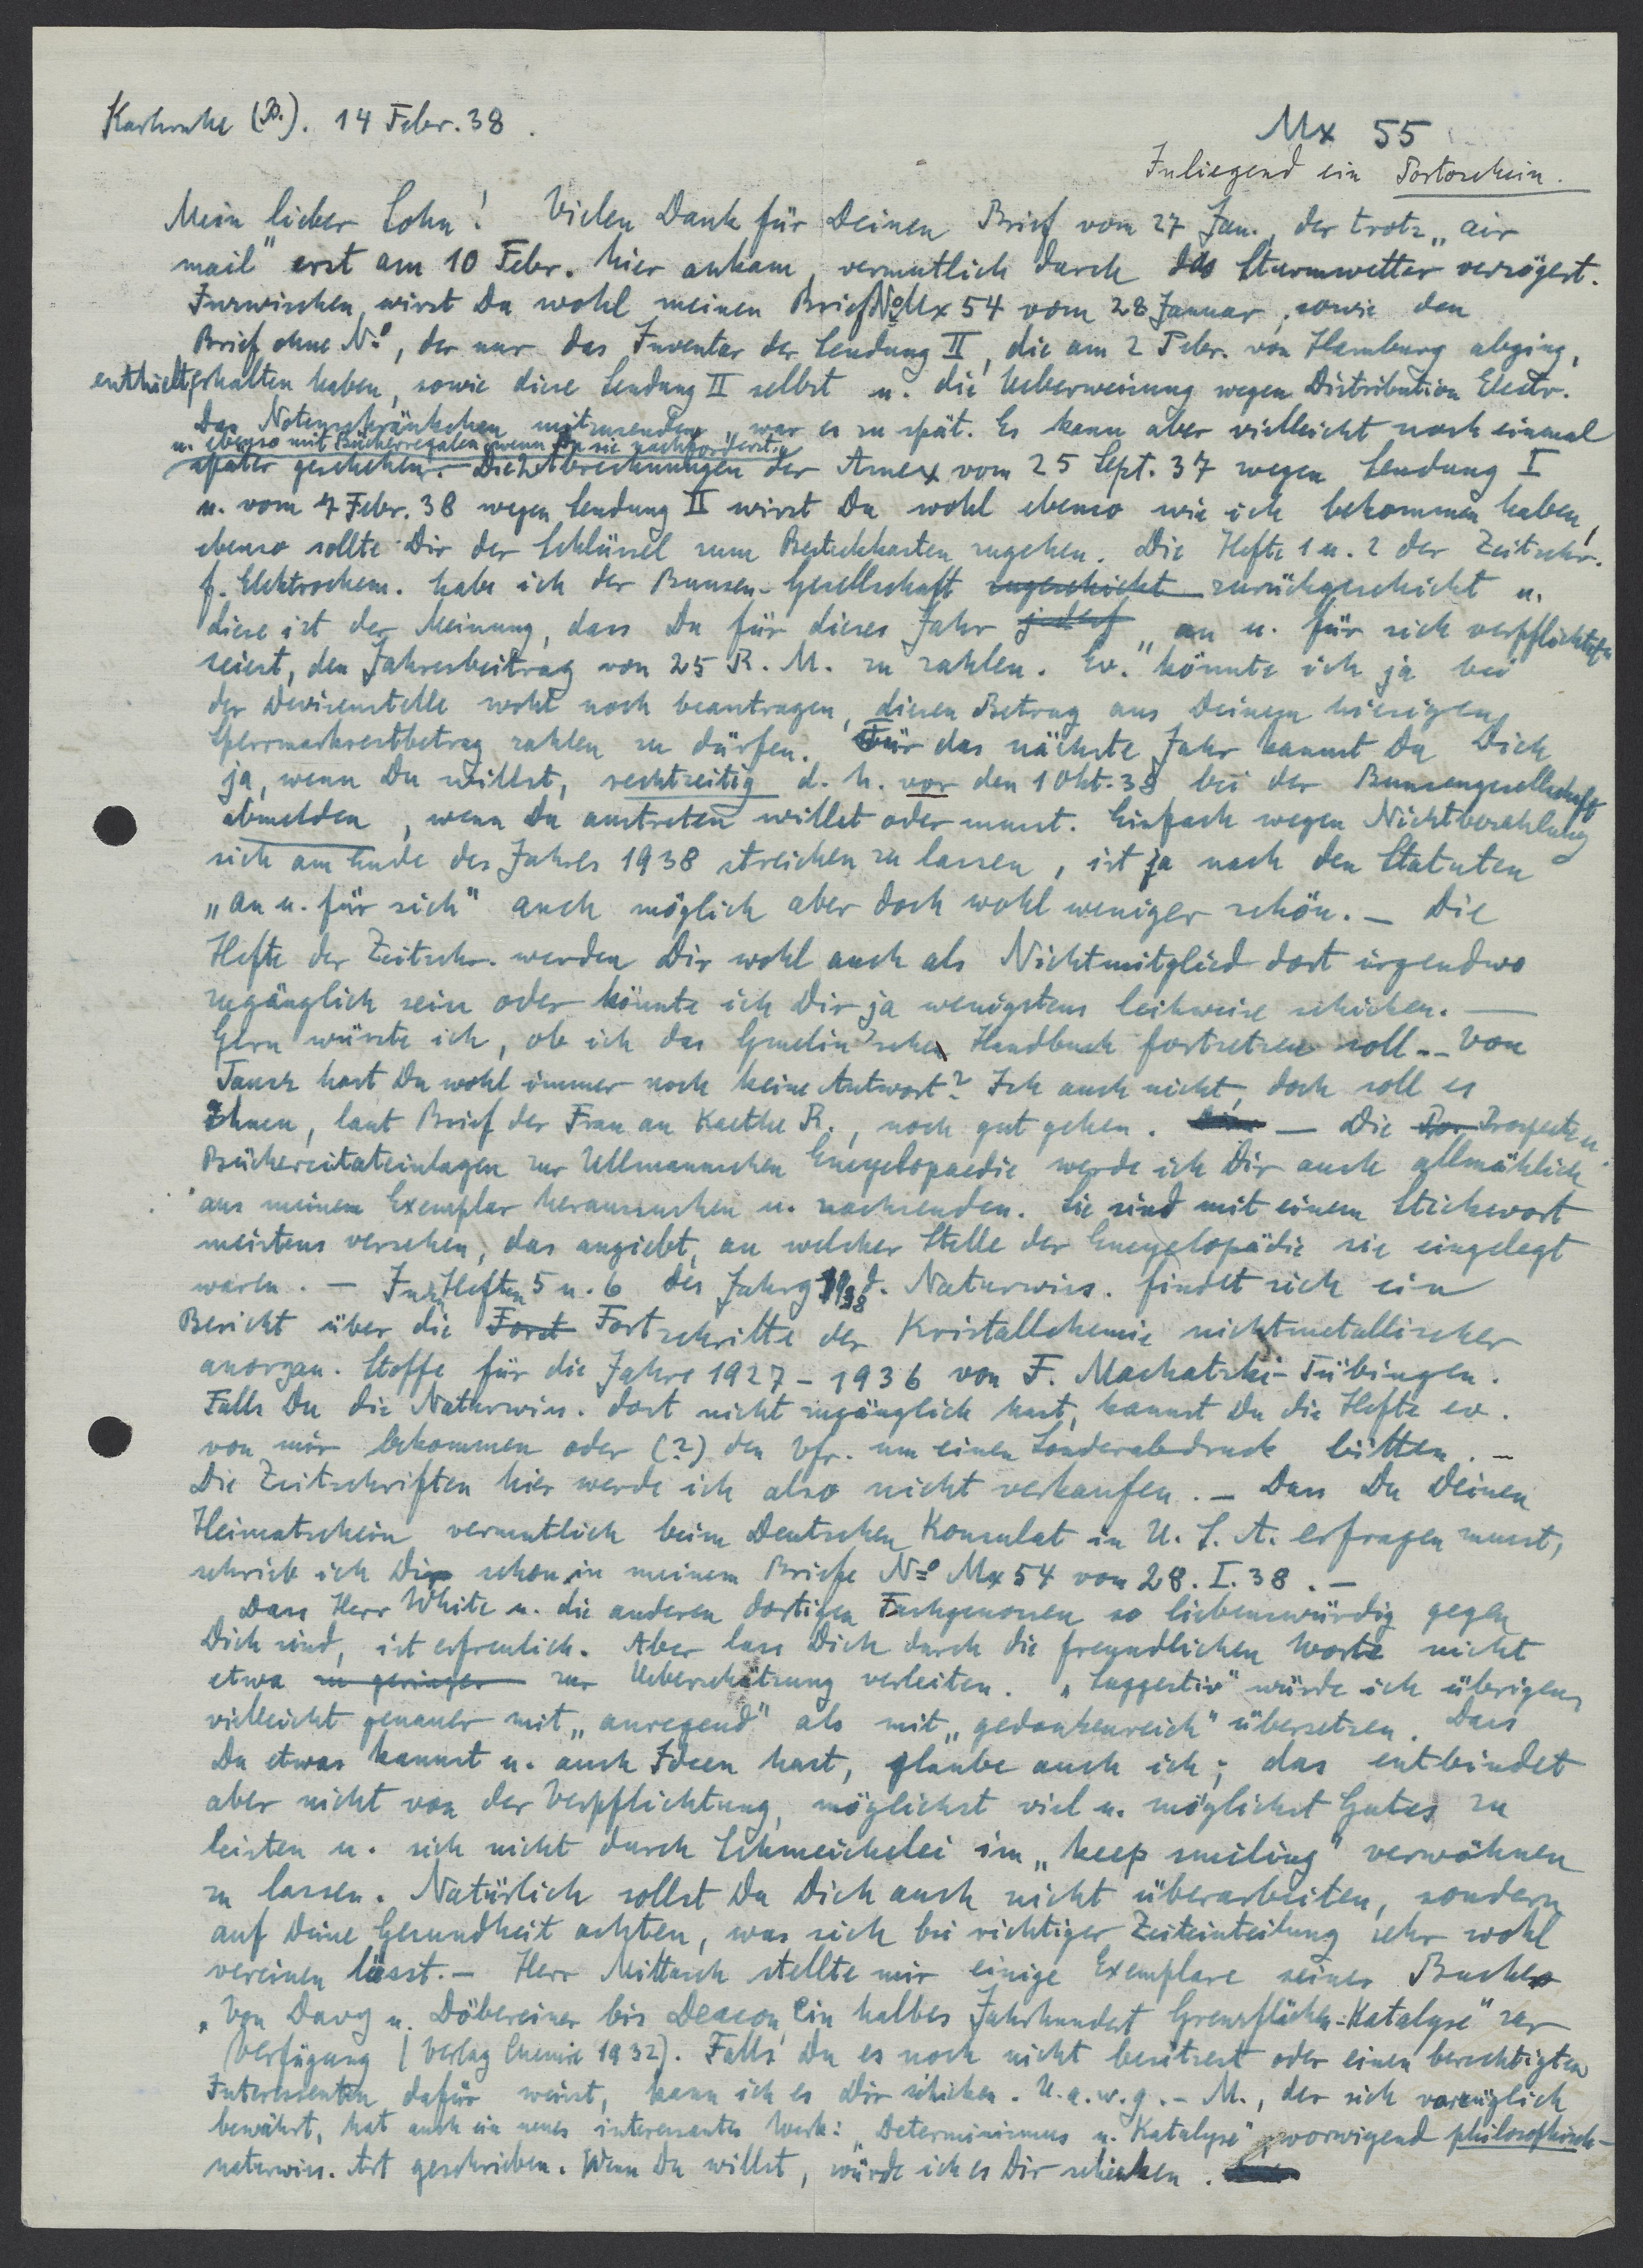 Karlsruhe (B.). 14 Febr. 38.
Mx 55
Inliegend ein Portoschein.
Mein lieber Sohn! Vielen Dank für Deinen Brief vom 27 Jan., der trotz „air
mail" erst am 10 Febr. hier ankam, vermutlich durch das Sturmwetter verzögert.
Inzwischen wirst Du wohl meinen Brief No Mx 54 vom 28 Januar, sowie den
Brief ohne No, der nur das Inventar der Sendung II, die am 2 Febr. von Hamburg abging,
enthielt, erhalten haben, sowie diese Sendung II selbst u. die Ueberweisung wegen Distribution Electr.
Das Notenschränkchen mitzusenden, war es zu spät. Es kann aber vielleicht noch einmal
u. ebenso mit Bücherregalen, wenn Du sie nachforderst.
später geschehen. Die 2 Abrechnungen der Amex vom 25 Sept. 37 wegen Sendung I
u. vom 4 Febr. 38 wegen Sendung II wirst Du wohl ebenso wie ich bekommen haben,
ebenso sollte Dir der Schlüssel zum Besteckkasten zugehen. Die Hefte 1 u. 2 der Zeitschr.
f. Elektrochem. habe ich der Bunsen-Gesellschaft zugeschickt zurückgeschickt u.
diese ist der Meinung, dass Du für dieses Jahr „an u. für sich verpflichtet
seiest, den Jahresbeitrag von 25 R. M. zu zahlen. Ev." könnte ich ja bei
der Devisenstelle wohl noch beantragen, diesen Betrag aus Deinem hiesigen
Sperrmarkrestbetrag zahlen zu dürfen. Für das nächste Jahr kannst Du Dich
ja, wenn Du willst, rechtzeitig d. h. vor den 1 Okt. 38 bei der Bunsengesellschaft
abmelden, wenn Du austreten willst oder musst. Einfach wegen Nichtbezahlung
sich am Ende des Jahres 1938 streichen zu lassen, ist ja nach den Statuten
„an u. für sich" auch möglich aber doch wohl weniger schön. — Die
Hefte der Zeitschr. werden Dir wohl auch als Nichtmitglied dort irgendwo
zugänglich sein oder könnte ich Dir ja wenigstens leihweise schicken. —
Gern wüsste ich, ob ich das Gmelin'sche Handbuch fortsetzen soll. — Von
Jansz hast Du wohl immer noch keine Antwort? Ich auch nicht, doch soll es
Ihnen, laut Brief der Frau an Kaethe R., noch gut gehen. — Die Prospecte u.
Bücherzitateinlagen zur Ullmannschen Encyclopaedie werde ich Dir auch allmählich
aus meinem Exemplar heraussuchen u. nachsenden. Sie sind mit einem Stichwort
meistens versehen, das angiebt, an welcher Stelle der Encyclopädie sie eingelegt
waren. — In den Heften 5 u. 6 des Jahrg 1938 d. Naturwiss. findet sich ein
Bericht über die Forst Fortschritte der Kristallchemie nichtmetallischer
anorgan. Stoffe für die Jahre 1927 - 1936 von F. Machatzki-Tübingen.
Falls Du die Naturwiss. dort nicht zugänglich hast, kannst Du die Hefte ev.
von mir bekommen oder (?) den Vfr. um einen Sonderabdruck bitten. —
Die Zeitschriften hier werde ich also nicht verkaufen. — Dass Du Deinen
Heimatschein vermutlich beim Deutschen Konsulat in U. S. A. erfragen musst,
schrieb ich Dir schon in meinem Briefe No Mx 54 vom 28. I. 38. —
Dass Herr White u. die anderen dortigen Fachgenossen so liebenswürdig gegen
Dich sind, ist erfreulich. Aber lass Dich durch die freundlichen Worte nicht
etwa zu geringer zur Ueberschätzung verleiten. „Suggestiv" würde ich übrigens
vielleicht genauer mit „anregend" als mit „gedankenreich" übersetzen. Dass
Du etwas kannst u. auch Ideen hast, glaube auch ich; das entbindet
aber nicht von der Verpflichtung, möglichst viel u. möglichst Gutes zu
leisten u. sich nicht durch Schmeichelei im „keep smiling" verwöhnen
zu lassen. Natürlich sollst Du Dich auch nicht überarbeiten, sondern
auf Deine Gesundheit achten, was sich bei richtiger Zeiteinteilung sehr wohl
vereinen lässt. — Herr Mittasch stellte mir einige Exemplare seines Buches
„Von Davy u. Döbereiner bis Deacon, Ein halbes Jahrhundert Grenzflächen-Katalyse" zur
Verfügung (Verlag Chemie 1932). Falls Du es noch nicht besitzest oder einen berechtigten
Interessenten dafür weisst, kann ich es Dir schicken. U. a. w. g. — M., der sich vorzüglich
bewährt, hat auch ein neues interessantes Werk: „Determinismus u. Katalyse", vorwiegend philosophisch-
naturwiss. Art geschrieben. Wenn Du willst, würde ich es Dir schicken.